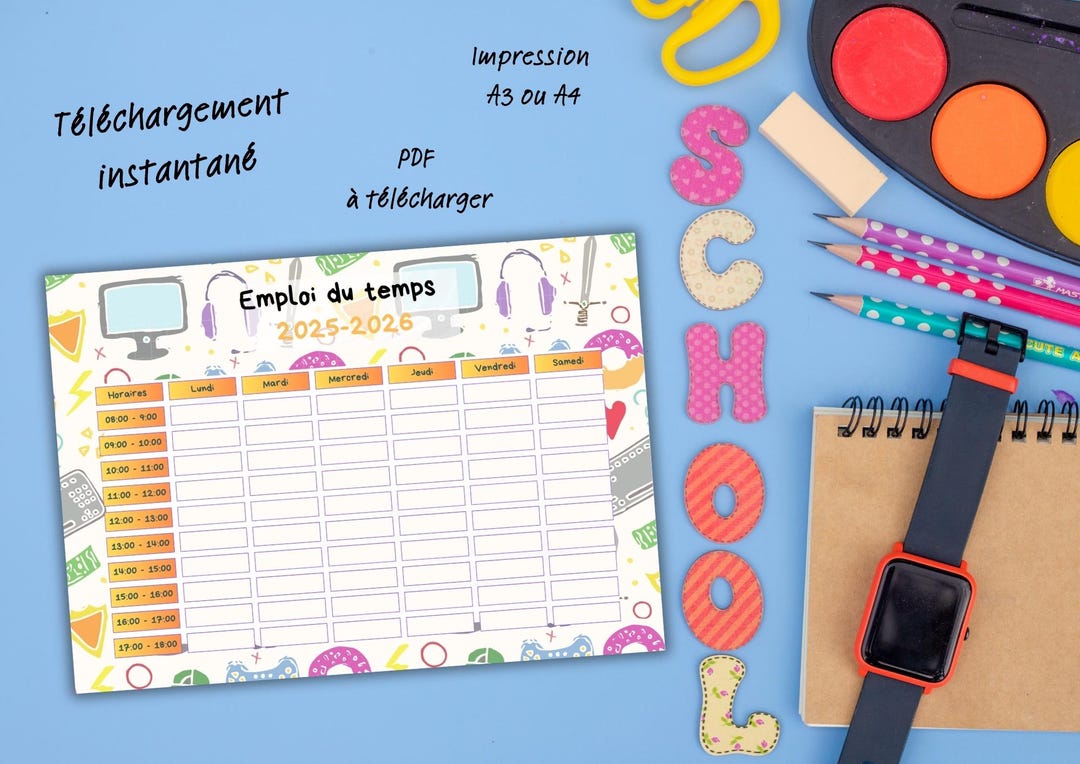 Impression
A3 ou A4
Téléchargement
instantané
PDF
à télécharger
Emploi du temps
2025-2026
Horaires Lundi Mardi Mercredi Jeudi Vendredi Samedi
08:00 - 9:00
09:00 - 10:00
10:00 - 11:00
11:00 - 12:00
12:00 - 13:00
13:00 - 14:00
14:00 - 15:00
15:00 - 16:00
16:00 - 17:00
17:00 - 18:00
SCHOOL
CUTE